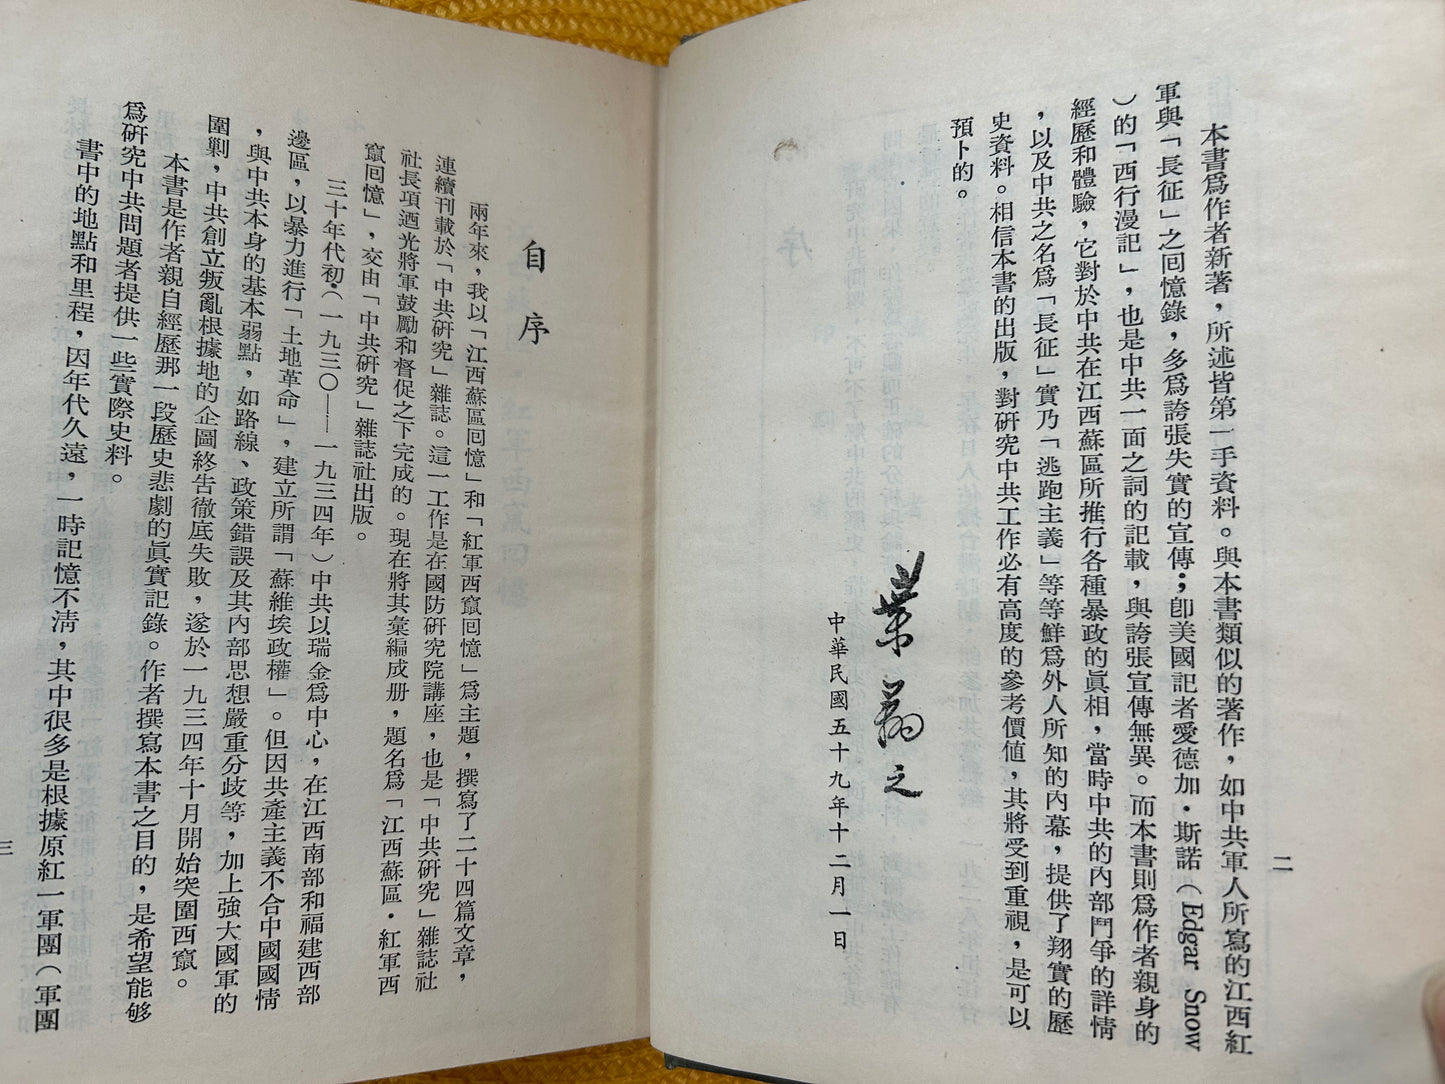 二
本書爲作者新著，所述皆第一手資料。與本書類似的著作，如中共軍人所寫的江西紅
軍與「長征」之回憶錄，多爲誇張失實的宣傳；卽美國記者愛德加·斯諾（Edgar Snow
）的「西行漫記」，也是中共一面之詞的記載，與誇張宣傳無異。而本書則爲作者親身的
經歷和體驗，它對於中共在江西蘇區所推行各種暴政的眞相，當時中共的內部鬥爭的詳情
，以及中共之名爲「長征」實乃「逃跑主義」等等鮮爲外人所知的內幕，提供了翔實的歷
史資料。相信本書的出版，對研究中共工作必有高度的參考價值，其將受到重視，是可以
預卜的。
葉翔之
中華民國五十九年十二月一日
自序
兩年來，我以「江西蘇區回憶」和「紅軍西竄回憶」爲主題，撰寫了二十四篇文章，
連續刊載於「中共研究」雜誌。這一工作是在國防研究院講座，也是「中共研究」雜誌社
社長項迺光將軍鼓勵和督促之下完成的。現在將其彙編成册，題名爲「江西蘇區·紅軍西
竄回憶」，交由「中共研究」雜誌社出版。
三十年代初·（一九三〇——一九三四年）中共以瑞金爲中心，在江西南部和福建西部
邊區，以暴力進行「土地革命」，建立所謂「蘇維埃政權」。但因共產主義不合中國國情
，與中共本身的基本弱點，如路線、政策錯誤及其內部思想嚴重分歧等，加上強大國軍的
圍剿，中共創立叛亂根據地的企圖終告徹底失敗，遂於一九三四年十月開始突圍西竄。
本書是作者親自經歷那一段歷史悲劇的眞實記錄。作者撰寫本書之目的，是希望能够
爲研究中共問題者提供一些實際史料。
書中的地點和里程，因年代久遠，一時記憶不淸，其中很多是根據原紅一軍團（軍團
三